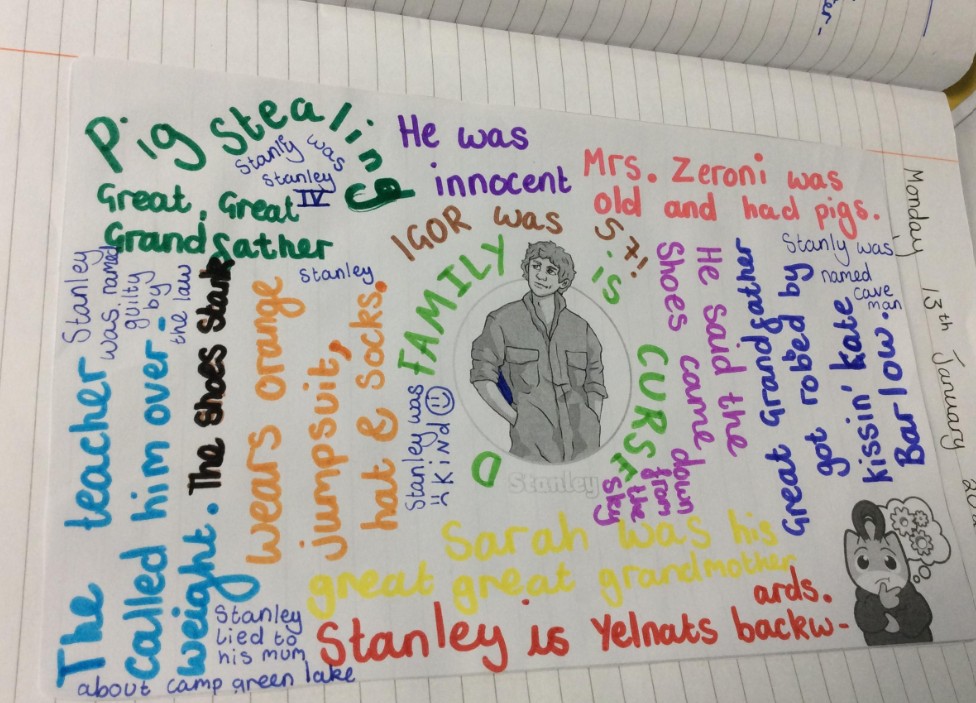 Pig Stealing
Great, Great
Grandfather
Stanly was
Stanley
IV
He was
innocent
Mrs. Zeroni was
old and had pigs.
IGOR was 57!
FAMILY is CURSED
Stanley
was named
guilty
by
the law
Stanley
wears orange
jumpsuit,
hat & socks.
The teacher
called him over-
weight. The Shoes Stank
Stanley was
Kind
Stanley
He said the
Shoes came down
from
the
sky
Great Grandfather
got robbed by
kissin' kate
Barlow.
Stanly was
named
cave
man
Sarah was his
great great grandmother
Stanley is Yelnats backw-
ards.
Stanley
lied to
his mum
about camp green lake
Monday 13th January